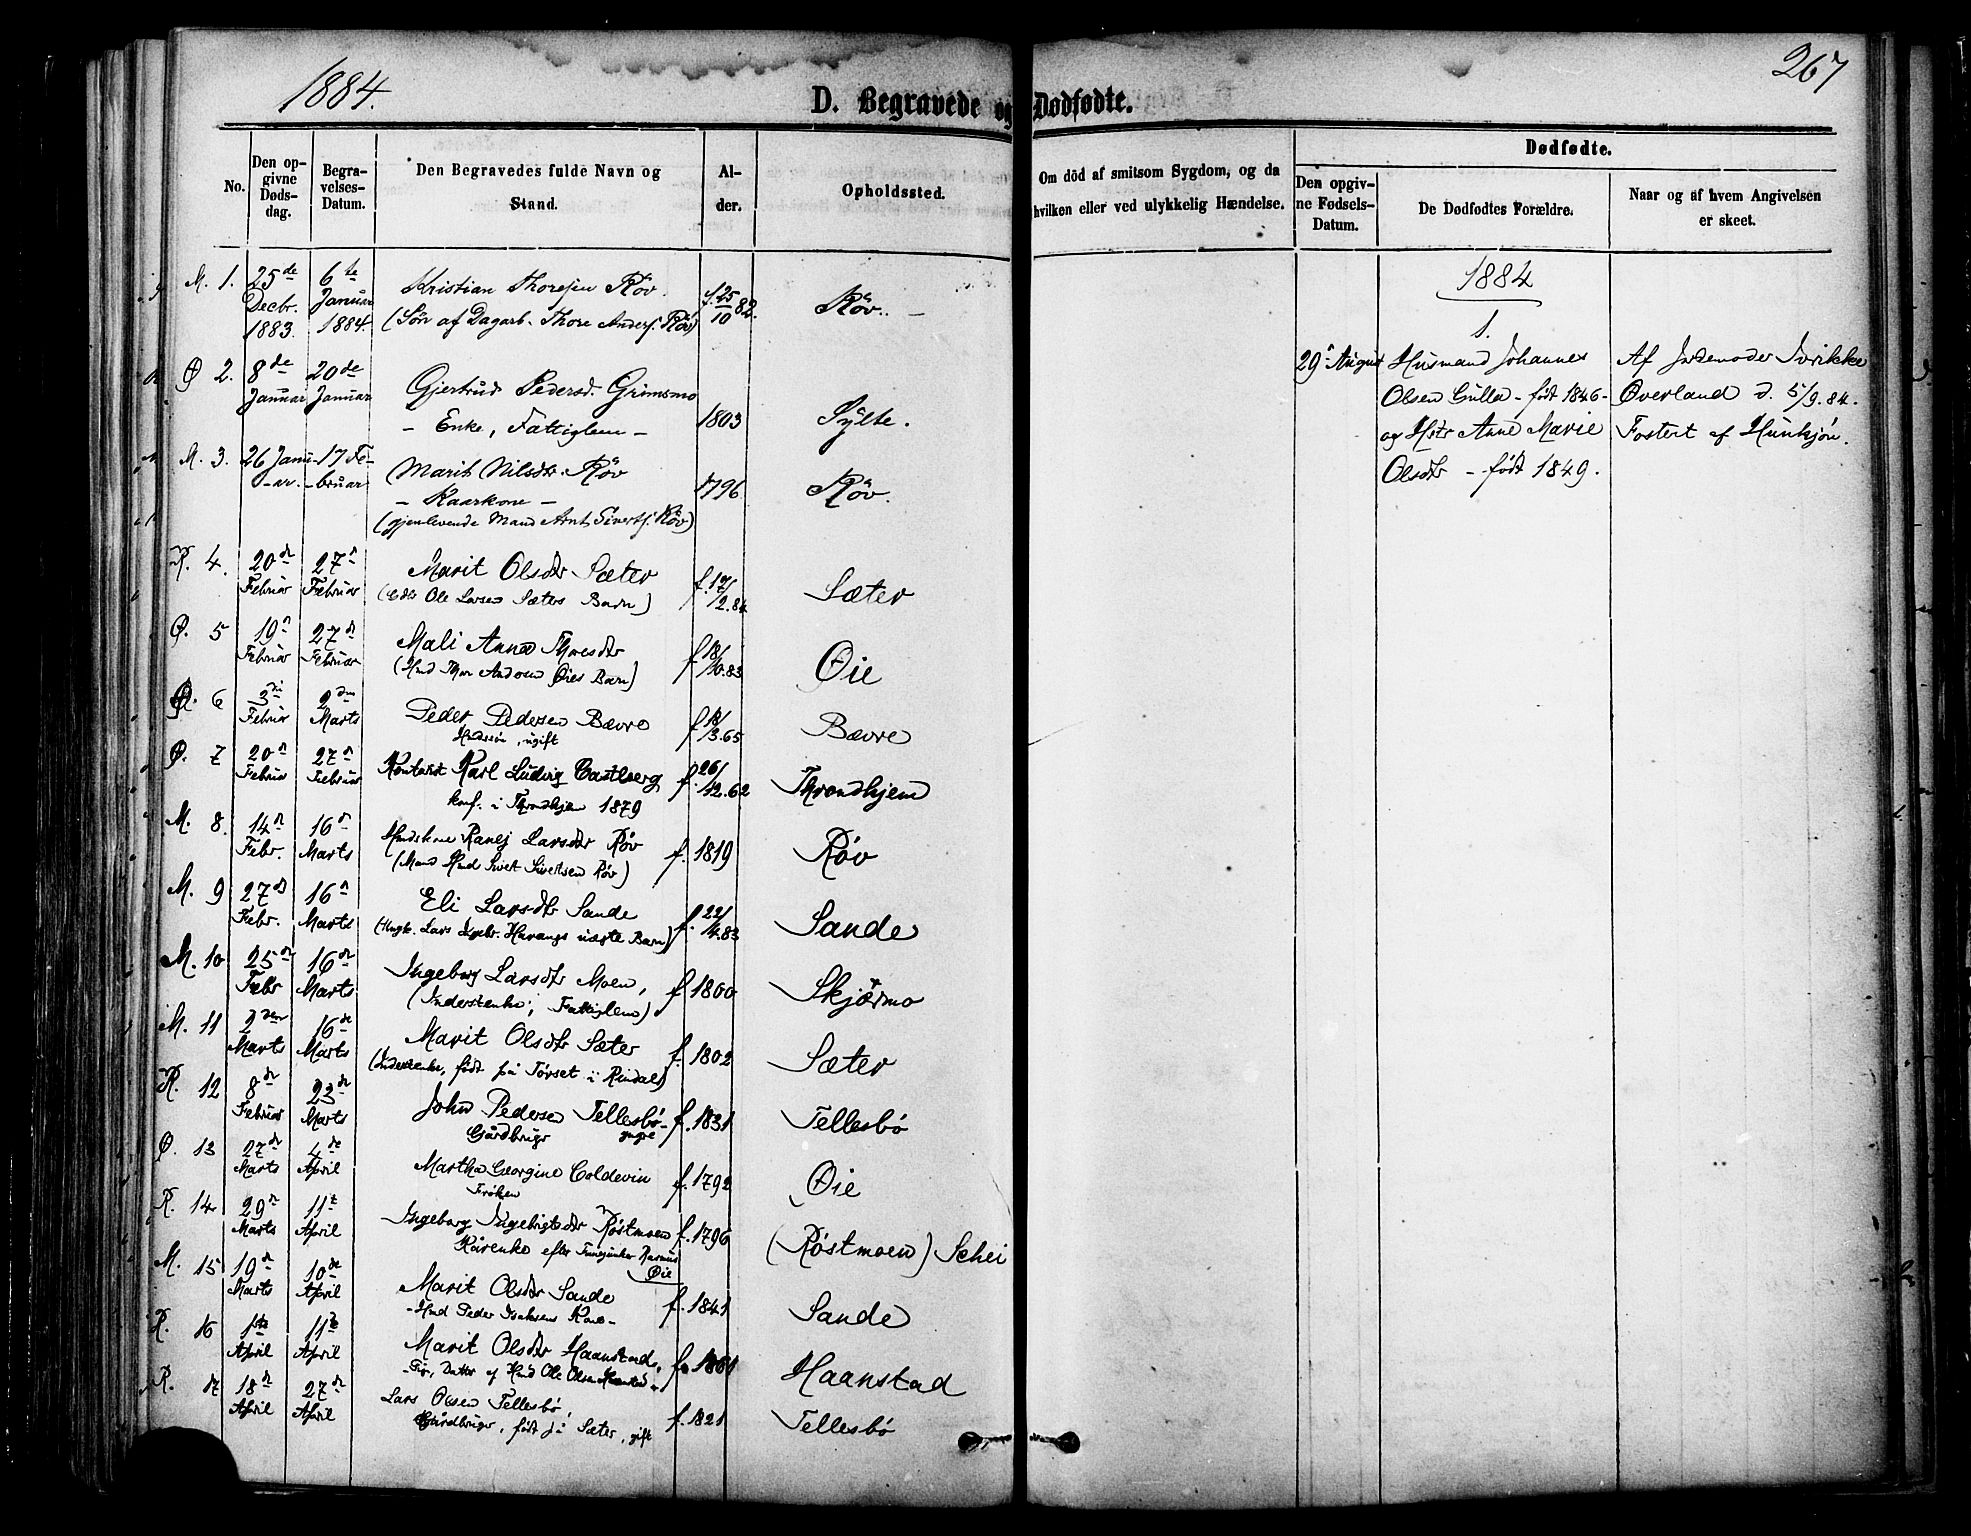 1884.
267
D. Begravede og Dødfødte.
No.
Den op-
givne
Døds-
dag.
Begra-
velses-
Datum.
Den Begravedes fulde Navn og
Stand.
Al-
der.
Opholdssted.
Om död af smitsom Sygdom, og da
hvilken eller ved ulykkelig Hændelse.
Dødfødte.
Den opgiv-
ne Fødsels-
Datum.
De Dødfødtes Forældre.
Naar og af hvem Angivelsen
er skeet.
M. 1. 25de Decbr. 1883. 6te Januar 1884. Kristian Thoresen Röv. f. 25/10 82. Röv.
(Søn af Dagarb. Thore Anders. Röv)
Ø 2. 8de Januar 20de Januar Gjertrud Pedersd. Grimsmo 1803 Sylte.
- Enke, Fattiglem -
M. 3. 26 Janu-ar. 17 Fe-bruar Marit Nilsdtr. Röv 1796 Röv.
- Kaarkone -
(gjenlevende Mand Arnt Siverts. Röv)
R. 4. 20de Februar 27de Februar Marit Olsdtr Sæter f. 17/2.84 Sæter
(Ole Larsen Sæters Barn)
Ø. 5 19de Februar 27de Februar Mali Anna Thoresdtr f. 18/10.83 Øie
(Øies Barn)
Ø. 6 3die Februar 2den Marts Peder Pedersen Bævre f. 18/3.65 Bævre
ugift
Ø. 7 20de Februar 27de Februar Kontorist Karl Ludvig Castberg f. 26/12.62 Throndhjem
konf. i Throndhjem 1879
M. 8. 14de Febr. 16de Marts Ranej Larsdtr Röv f. 1819 Röv
(Mand Hmd Sivert Sivertsen Röv)
M. 9 27de Febr. 16de Marts Eli Larsdtr Sande f. 22/4.83 Sande
(Ungk. Lars Havangs uægte Barn)
M. 10 25de Febr 16de Marts Ingeborg Larsdtr Moen, f. 1800 Skjærmo
(Inderstenke; Fattiglem)
M. 11 2den Marts 16de Marts Marit Olsdtr Sæter f. 1802 Sæter
(Inderstenke, født på Tørset i Rindal)
R. 12 8de Februar 23de Marts John Pedersen Tellesbö f. 1831 Tellesbö
Gårdbruger yngre
Ø. 13 27de Marts 4de April Martha Georgine Coldevin f. 1792 Øie
Frøken
R. 14 29de Marts 11te April Ingeborg Ingebrigtsdtr Röstmoen f. 1796 (Röstmoen) Schei
Kårenke efter Rasmus
Øie
M. 15 19de Marts 10de April Marit Olsdtr Sande f. 1841 Sande
- Hmd Peder Isaksens Kone -
R. 16 1ste April 11te April Marit Olsdtr Haanstad, Haanstad
Datter af Hmd Ole Olsen Haanstad
R. 17 18de April 27de April Lars Olsen Tellesbö, f. 1821 Tellesbö
Gårdbruger, født på Sæter, gift
1884
1.
29de August Husmand Johannes Af Jordemoder
Olsen Gulla - født 1846 - Øverland d. 5/9. 84.
og Hstr Anne Marie Fosteret af Hunkjön.
Olsdtr - født 1849.